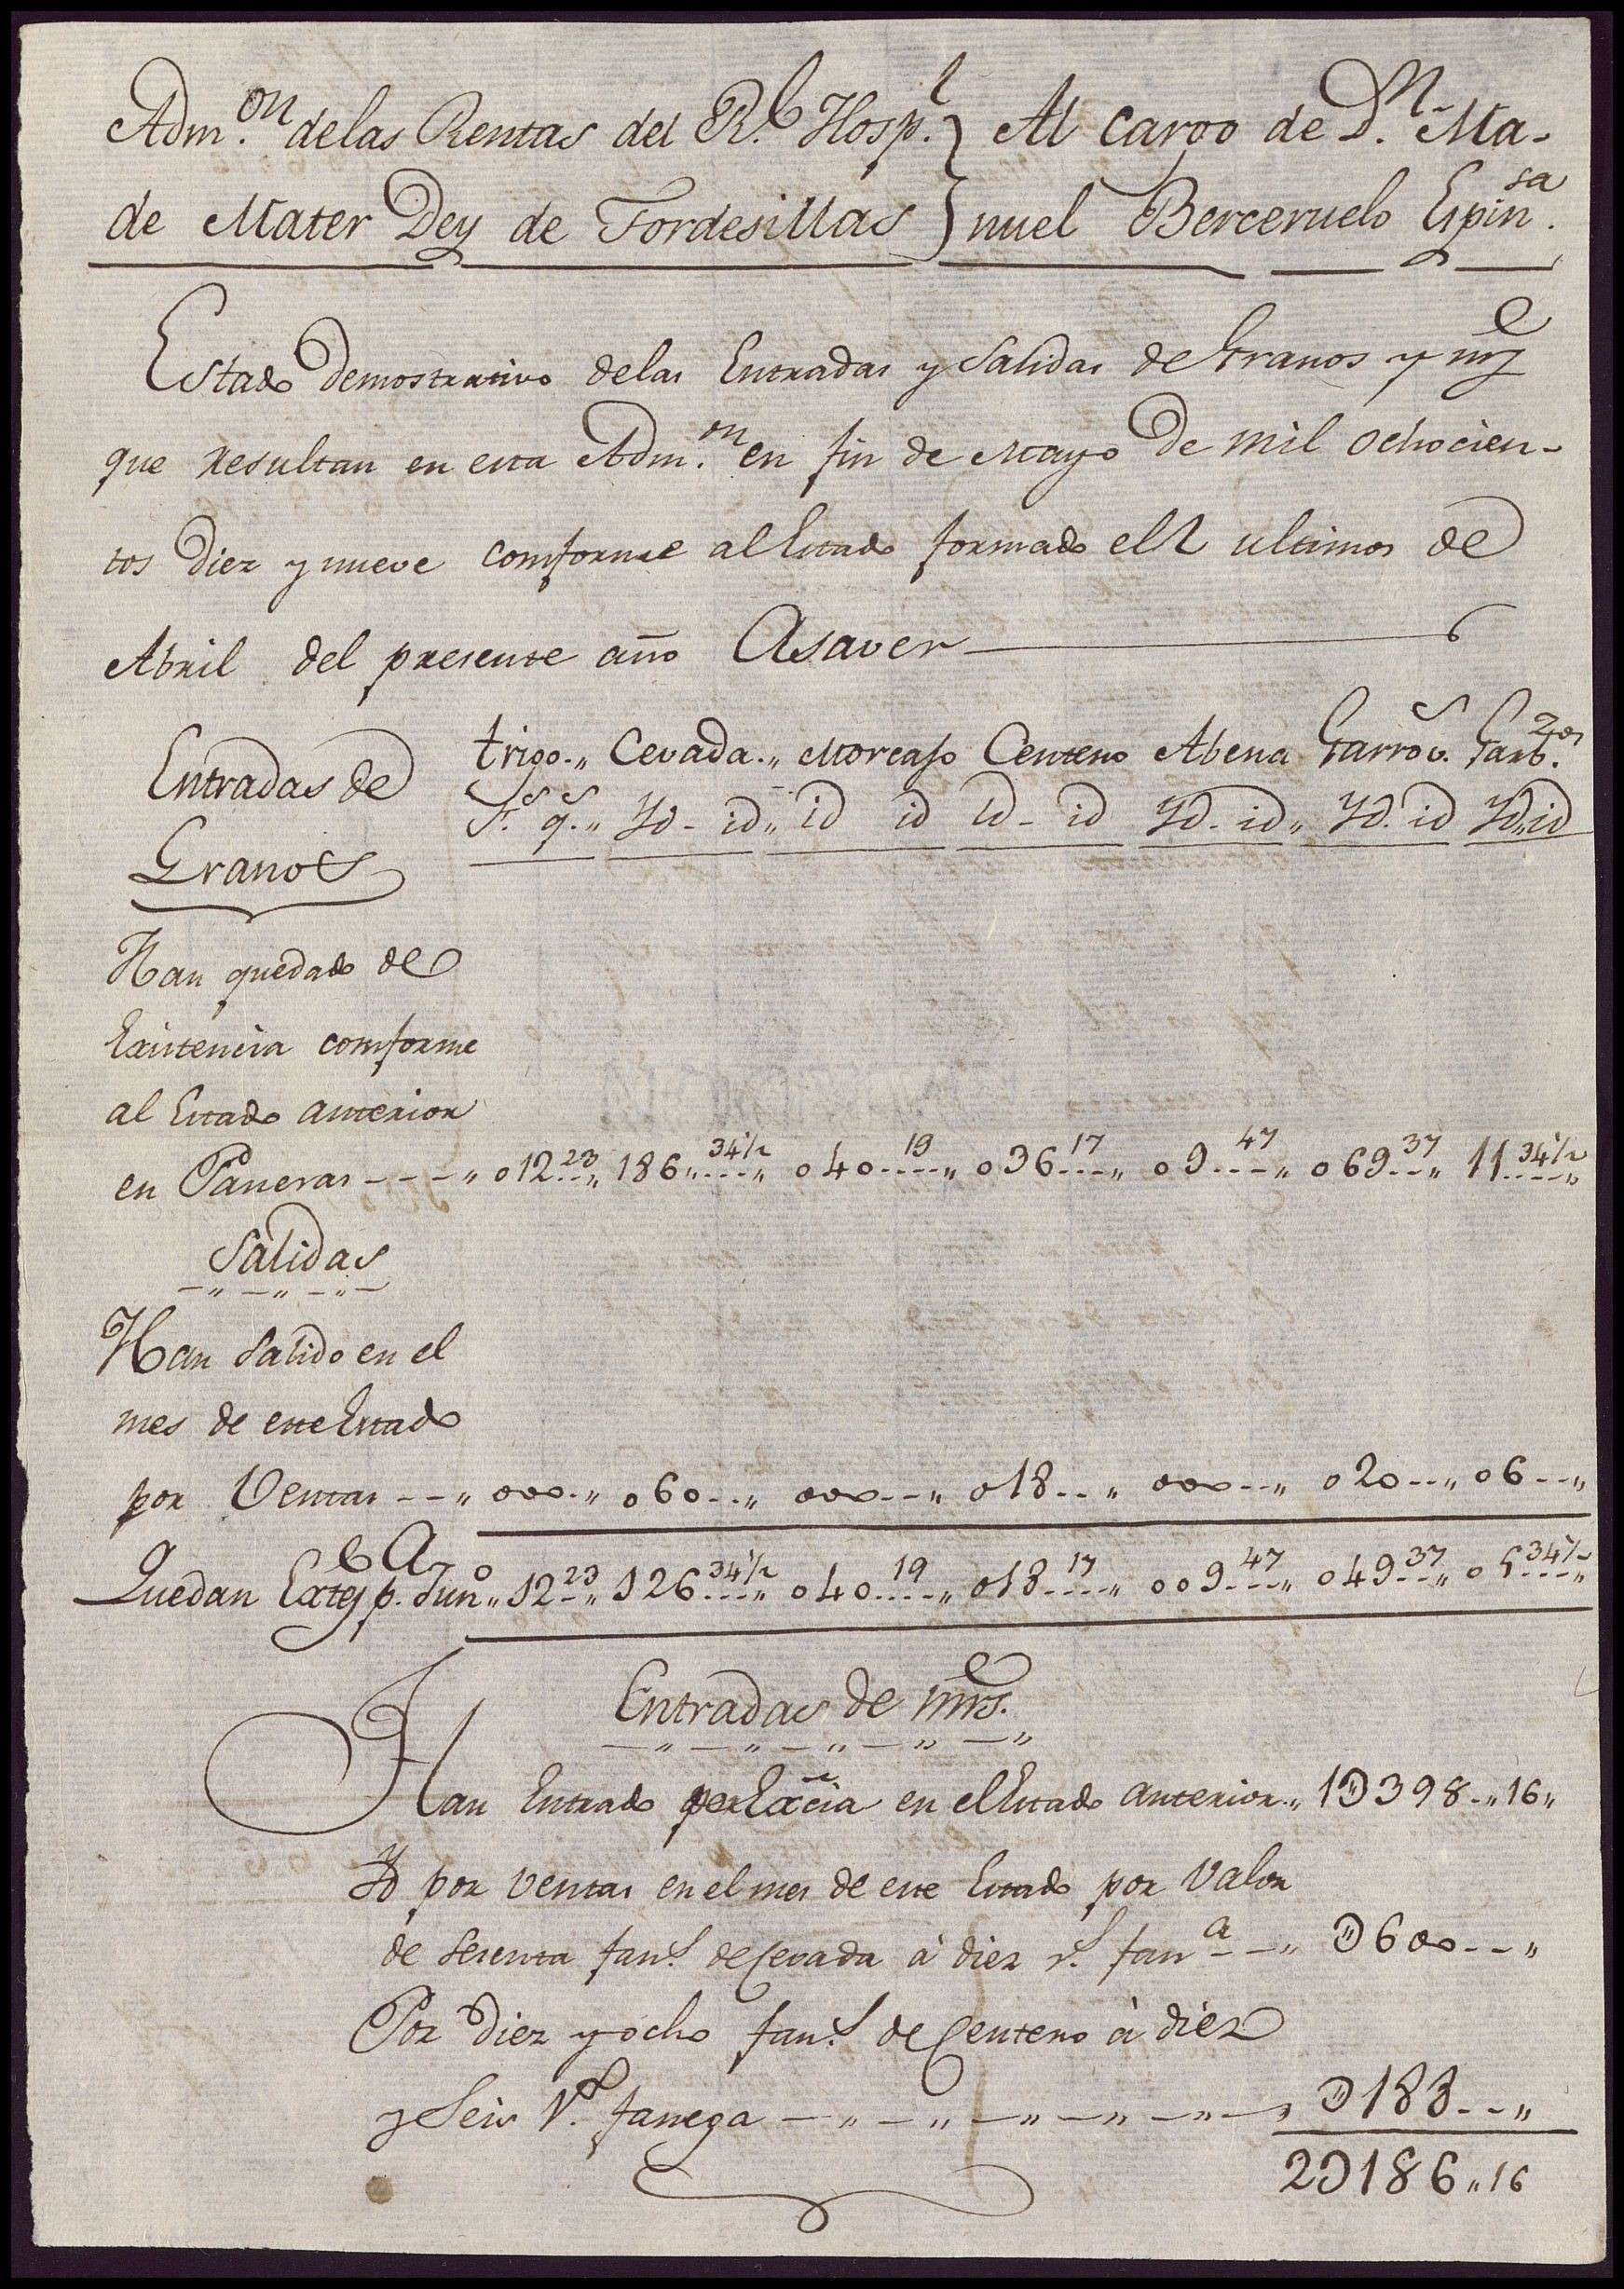 Adm.on delas Rentas del R.l Hosp.l } Al Cargo de D.n Ma-
de Mater Dey de Tordesillas } nuel Berceruelo Espin.sa
Estado Demostrativo delas Entradas y Salidas de Granos y mrs
que resultan en esta Adm.on en fin de Mayo de mil ochocien-
tos Diez y nueve comforme al Estado formado el ultimos de
Abril del presente año Asaver
Entradas de
Granos
trigo.,, Cevada.,, Morcajo Centeno Abena Garrov.s Garb.zos
F.s q.s,, Yd - id,, id id id - id Yd - id,, Yd. id Yd,, id
Han quedado de
Existencia comforme
al Estado anterior
en Paneras - - - ,, 012..23,, 186,,..34½,, 040...19,, 036...17,, 09...47,, 069..37,, 11..34½,,
Salidas
Han Salido en el
mes de este Estado
por Ventas - - ,, 000.,, 060..,, 000..,, 018..,, 000..,, 020..,, 06..,,
Quedan Extes p.a Jun.o,, 12..23,, 126..34½,, 040...19,, 018...17,, 009...47,, 049..37,, 05..34½,,
Entradas de mrs.
Han Entrado por Exãcia en el Estado anterior.,, 1Ɔ398.,,16,,
Yd por Ventas en el mes de este Estado por Valor
de Sesenta fan.s de Cevada à diez r.s fan.a - - ,, Ɔ600..,,
Por Diez y ocho fan.s de Centeno à diez
y Seis r.s fanega - ,, - ,, - ,, - ,, - ,, - , Ɔ188..,,
2Ɔ186,,16